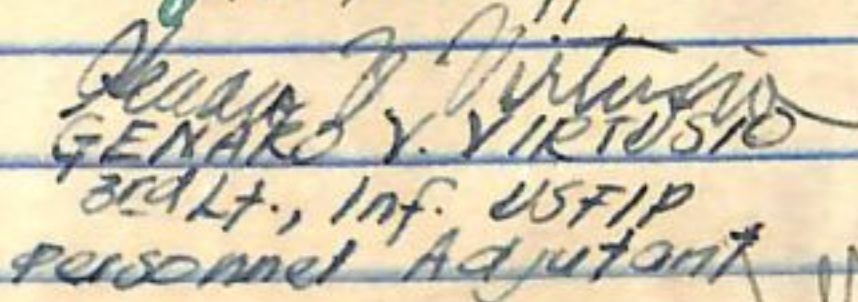 Genaro V Virtusio
GENARO V. VIRTUSIO
3rd Lt., Inf. USFIP
Personnel Adjutant